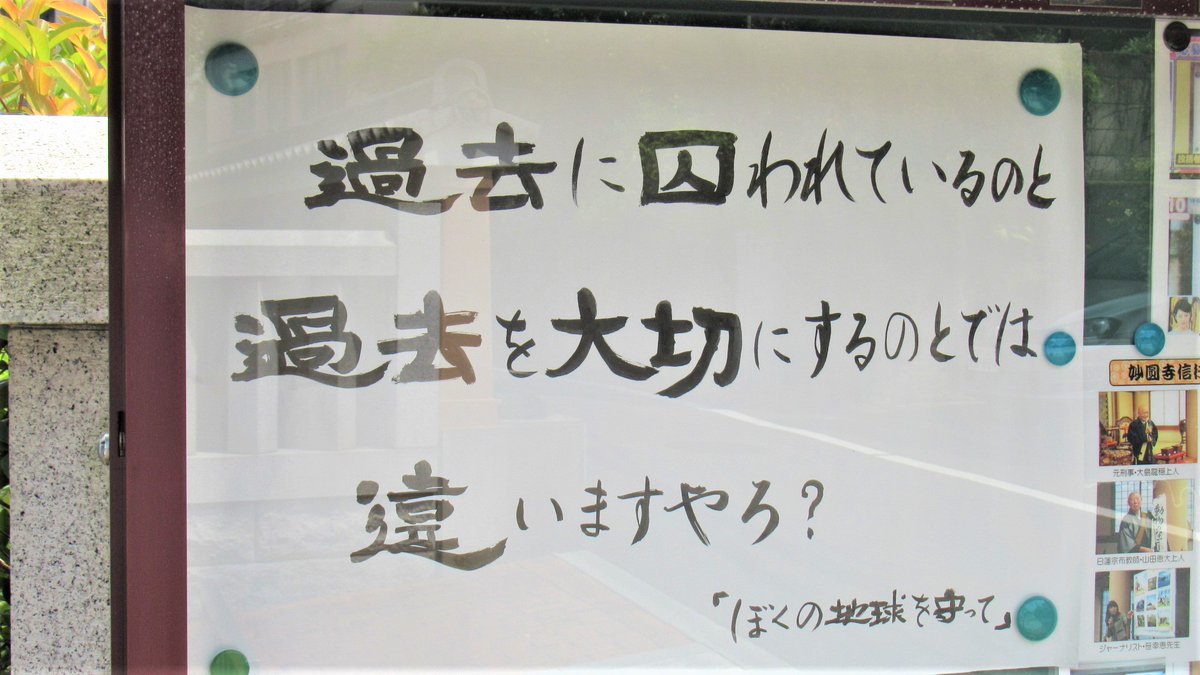 過去に囚われているのと
過去を大切にするのとでは
違いますやろ?
「ぼくの地球を守って」
妙圓寺信
元刑事・大島龍穏上人
日蓮宗布教師・山田恵大上人
ジャーナリスト・笹幸恵先生